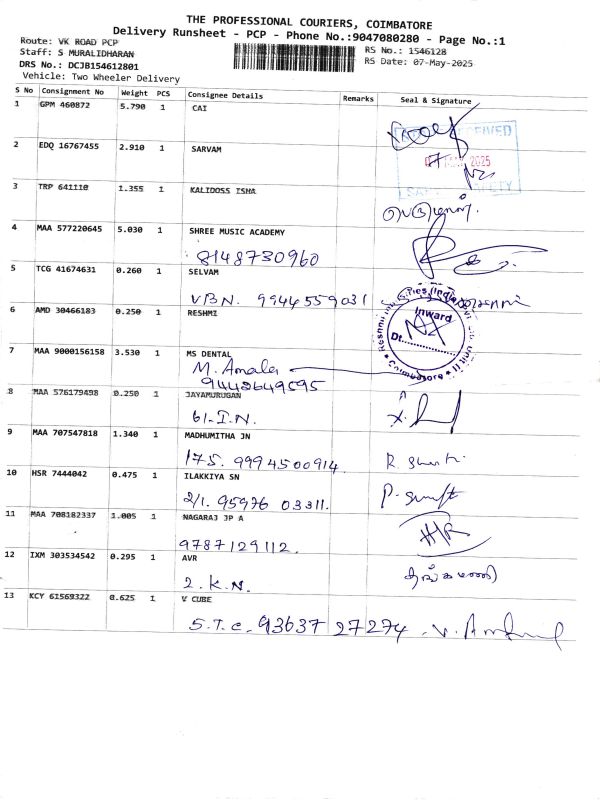 THE PROFESSIONAL COURIERS, COIMBATORE
Delivery Runsheet - PCP - Phone No.:9047080280 - Page No.:1
Route: VK ROAD PCP
Staff: S MURALIDHARAN
DRS No.: DCJB154612801
Vehicle: Two Wheeler Delivery
RS No.: 1546128
RS Date: 07-May-2025
S No Consignment No Weight PCS Consignee Details Remarks Seal & Signature
1 GPM 460872 5.790 1 CAI
RECEIVED
2025
2 EDQ 16767455 2.910 1 SARVAM
3 TRP 641110 1.355 1 KALIDOSS ISHA
4 MAA 577220645 5.030 1 SHREE MUSIC ACADEMY
8148730960
5 TCG 41674631 0.260 1 SELVAM
VBN. 9944559031
6 AMD 30466183 0.250 1 RESHMI
Inward
Dt.
Coimbatore
7 MAA 9000156158 3.530 1 MS DENTAL
M. Amala
9442649595
8 MAA 576179498 0.250 1 JAYAMURUGAN
61.I.N.
9 MAA 707547818 1.340 1 MADHUMITHA JN
175. 9994500914.
10 HSR 7444042 0.475 1 ILAKKIYA SN
2/1. 95976 03311.
11 MAA 708182337 1.005 1 NAGARAJ JP A
9787129112.
12 IXM 303534542 0.295 1 AVR
2.K.N.
13 KCY 61569322 0.625 1 V CUBE
S.T.C. 93637 27274